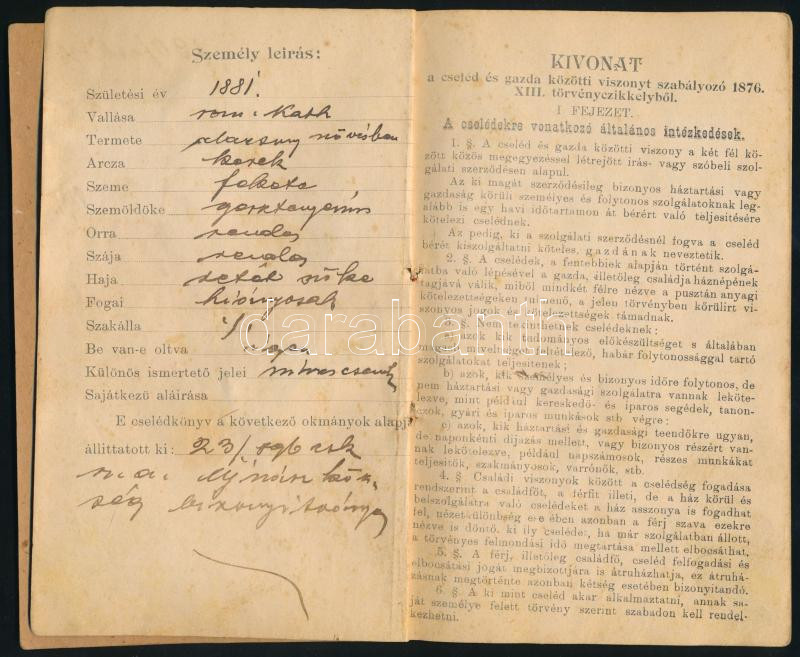 Személy leirás:
Születési év 1881.
Vallása rom. kath
Termete alacsony növésben
Arcza kerek
Szeme fekete
Szemöldöke gesztenyeszin
Orra rendes
Szája rendes
Haja setét szőke
Fogai hiányosak
Szakálla
Be van-e oltva
Különös ismertető jelei nincsenek
Sajátkezü aláirása
E cselédkönyv a következő okmányok alapj
állittatott ki: 23/
köz-
ség bizonyitványa
KIVONAT
a cseléd és gazda közötti viszonyt szabályozó 1876.
XIII. törvényczikkelyből.
I FEJEZET.
A cselédekre vonatkozó általános intézkedések.
1. §. A cseléd és gazda közötti viszony a két fél kö-
zött közös megegyezéssel létrejött irás- vagy szóbeli szol-
gálati szerződésen alapul.
Az ki magát szerződésileg bizonyos háztartási vagy
gazdaság körüli személyes és folytonos szolgálatoknak leg-
alább is egy havi időtartamon át bérért való teljesitésére
kötelezi cselédnek.
Az pedig, ki a szolgálati szerződésnél fogva a cseléd
bérét kiszolgáltatni köteles, gazdának neveztetik.
2. §. A cselédek, a fentebbiek alapján történt szolgá-
latba való lépésével a gazda, illetőleg családja háznépének
tagjává válik, miből mindkét félre nézve a pusztán anyagi
kötelezettségeken túlmenő, a jelen törvényben körülirt vi-
szonyos jogok és kötelezettségek támadnak.
3. §. Nem tekinthetek cselédeknek:
a) azok kik tudományos előkészültséget s általában
magasb miveltséget feltételező, habár folytonossággal tartó
szolgálatokat teljesitenek;
b) azok, kik személyes és bizonyos időre folytonos, de
nem háztartási vagy gazdasági szolgálatra vannak lekötе-
lezve, mint például kereskedő- és iparos segédek, tanon-
czok, gyári és iparos munkások stb végre:
c) azok, kik háztartási és gazdasági teendőkre ugyan,
de naponkénti dijazás mellett, vagy bizonyos részért van-
nak lekötelezve, például napszámosok, részes munkákat
teljesitők, szakmányosok, varrónők, stb.
4. § Családi viszonyok között a cselédség fogadása
rendszerint a családfőt, a férfit illeti, de a ház körül és
belszolgálatra való cselédeket a ház asszonya is fogadhat
fel, nézetkülönbség ese ében azonban a férj szava ezekre
nézve is döntő. ki ily cselédet, ha már szolgálatban állott,
a törvényes felmondási idő megtartása mellett elbocsáthat,
5. §. A férj, illetőleg családfő, cseléd felfogadási és
elbocsátási jogát megbizottjára is átruházhatja, ez átruhá-
zásnak megtörténte azonban kétség esetében bizonyitandó.
6. § A ki mint cseléd akar alkalmaztatni, annak sa-
ját személye felett törvény szerint szabadon kell rendel-
kezhetni.
darabanth